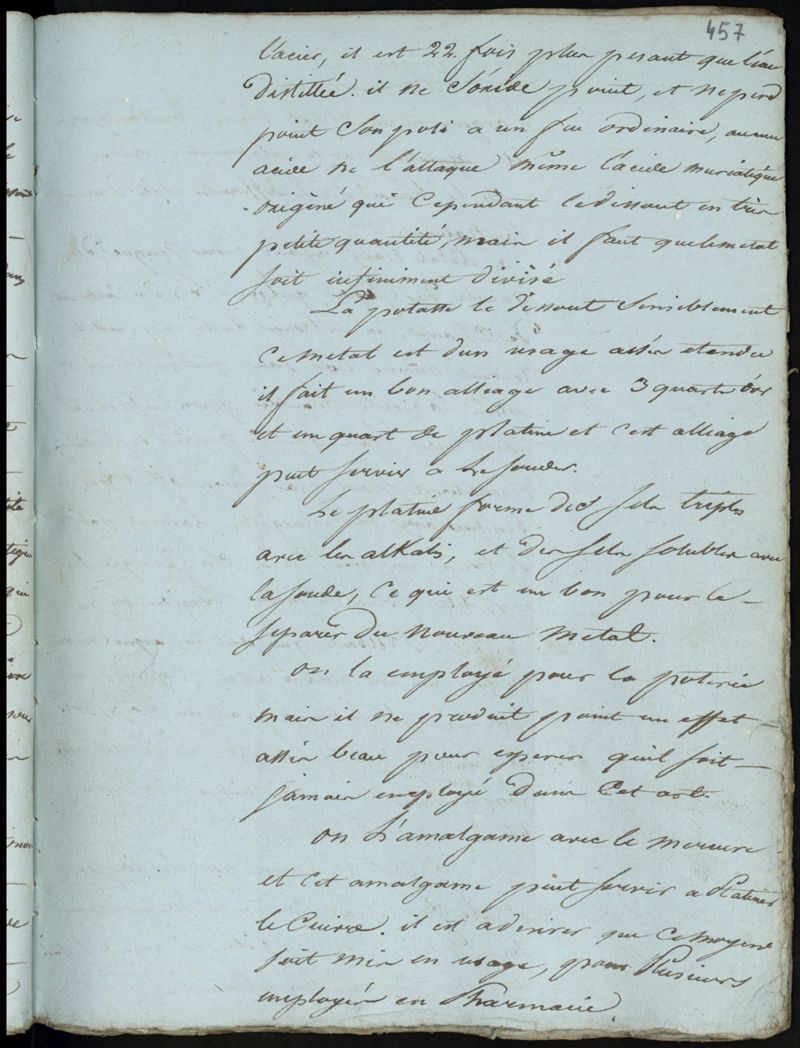 457
l'acier, il est 22 fois plus pesant que l'eau
Distillée. il ne s'oxide point, et ne perd
point son poli a un feu ordinaire, aucun
acide ne l'attaque même l'acide muriatique
oxigéné qui cependant le dissout en très
petite quantité, mais il faut que le metal
soit infiniment divisé
La potasse le dissout sensiblement
ce metal est d'un usage assés etendu
il fait un bon alliage avec 3 quarts d'or
et un quart de platine et cest alliage
peut servir a le souder.
Le platine forme des sels triples
avec les alkalis, et des sels solubles avec
la soude, ce qui est un bon pour le
separer du nouveau metal.
on la employé pour la poterie
mais il ne produit point un effet
assés beau pour esperer quil soit
jamais employé dans cet art.
on L'amalgame avec le mercure
et cet amalgame peut servir a Platiner
le Cuivre. il est a desirer que ce moyens
soit mis en usage, pour Plusieurs
employés en Pharmacie.